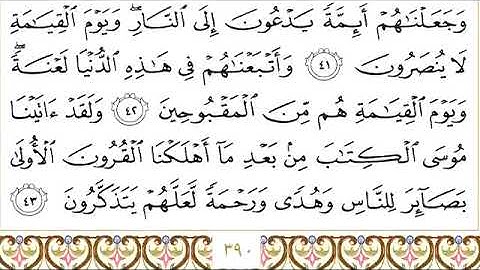 وَجَعَلْنَٰهُمْ أَئِمَّةً يَدْعُونَ إِلَى ٱلنَّارِ ۖ وَيَوْمَ ٱلْقِيَٰمَةِ
لَا يُنصَرُونَ ٤١ وَأَتْبَعْنَٰهُمْ فِى هَٰذِهِ ٱلدُّنْيَا لَعْنَةً ۖ
وَيَوْمَ ٱلْقِيَٰمَةِ هُم مِّنَ ٱلْمَقْبُوحِينَ ٤٢ وَلَقَدْ ءَاتَيْنَا
مُوسَى ٱلْكِتَٰبَ مِنۢ بَعْدِ مَآ أَهْلَكْنَا ٱلْقُرُونَ ٱلْأُولَىٰ
بَصَآئِرَ لِلنَّاسِ وَهُدًى وَرَحْمَةً لَّعَلَّهُمْ يَتَذَكَّرُونَ ٤٣
٣٩٠